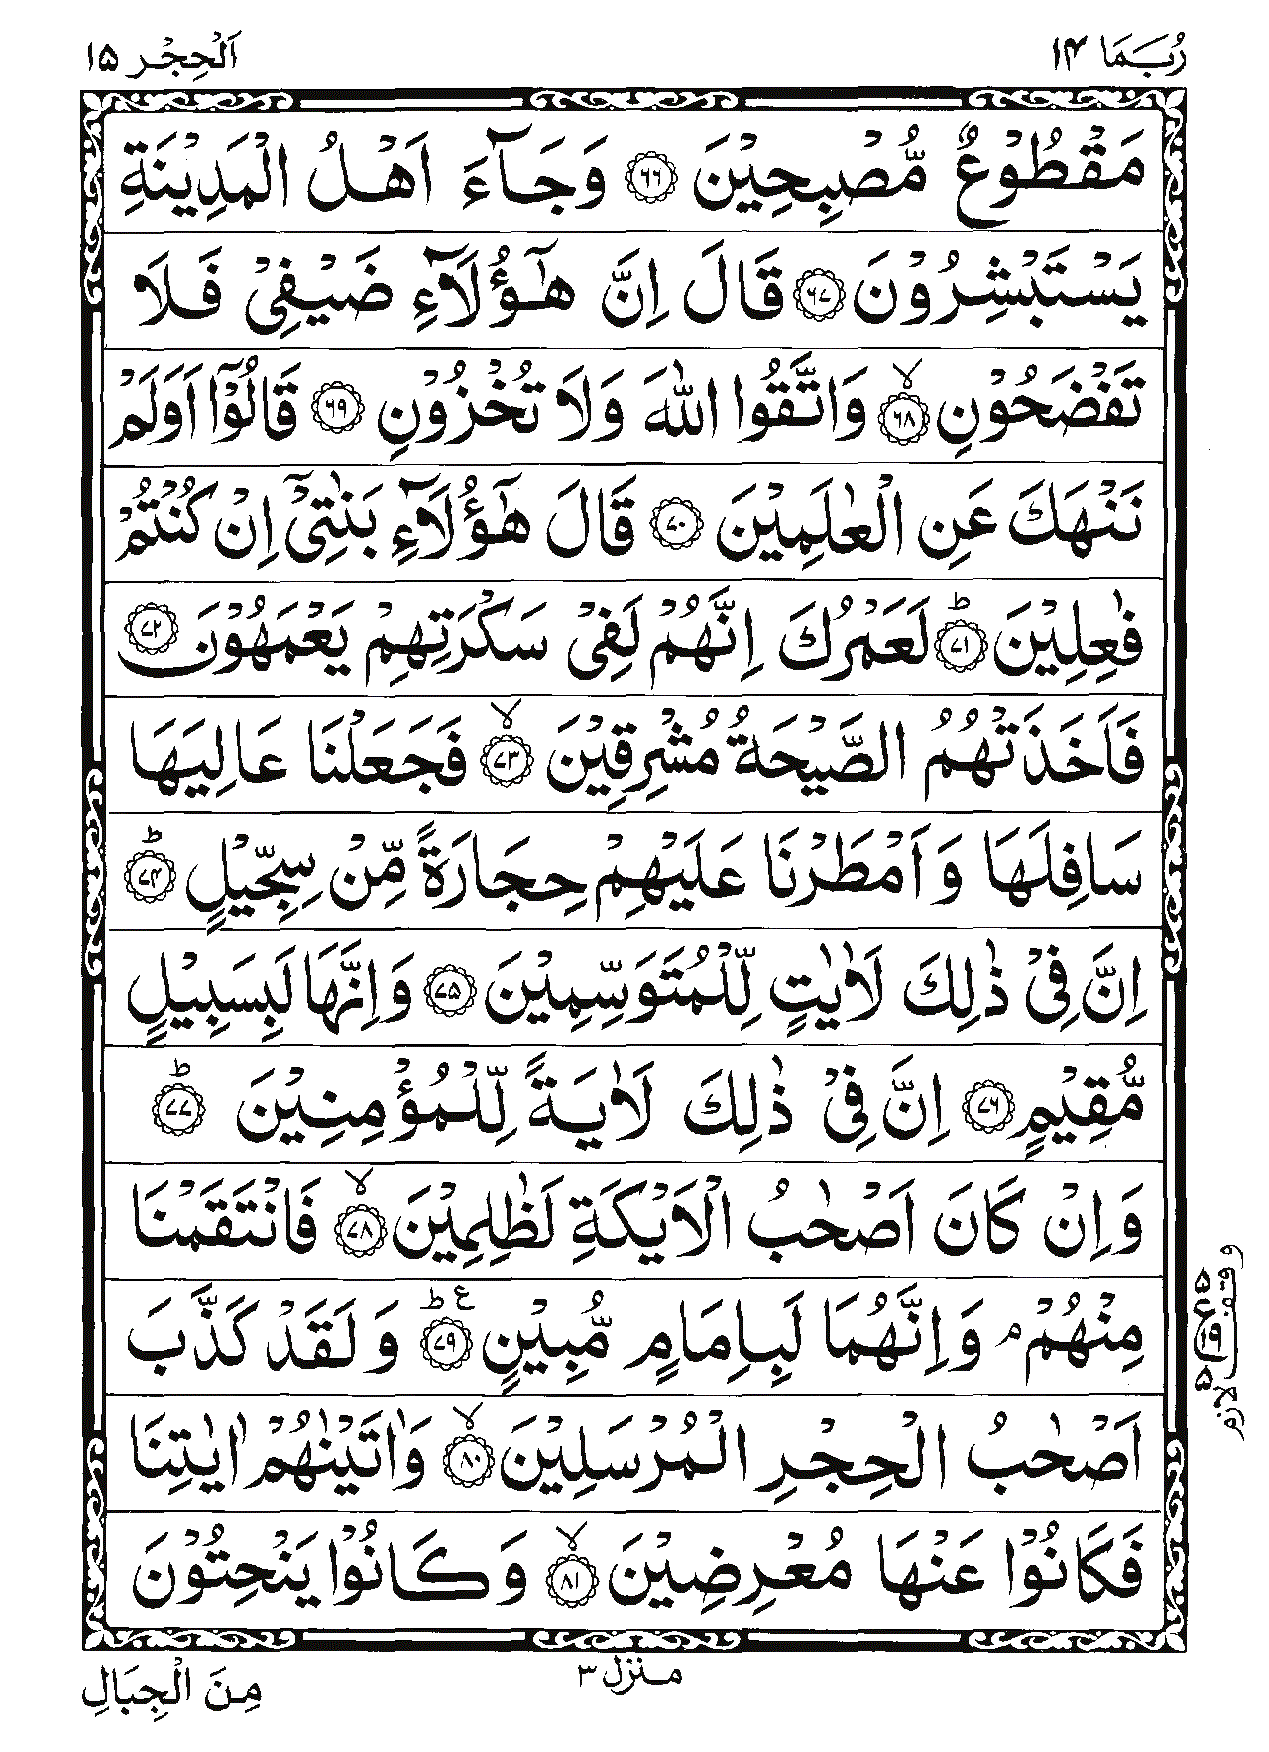 رُبَمَا ١٤
اَلْحِجْر ١٥
مَقْطُوْعٌ مُّصْبِحِيْنَ ﴿٦٦﴾ وَجَآءَ اَهْلُ الْمَدِيْنَةِ
يَسْتَبْشِرُوْنَ ﴿٦٧﴾ قَالَ اِنَّ هٰٓؤُلَآءِ ضَيْفِىْ فَلَا
تَفْضَحُوْنِ ﴿٦٨﴾ۙ وَاتَّقُوا اللّٰهَ وَلَا تُخْزُوْنِ ﴿٦٩﴾ قَالُوْٓا اَوَلَمْ
نَنْهَكَ عَنِ الْعٰلَمِيْنَ ﴿٧٠﴾ قَالَ هٰٓؤُلَآءِ بَنٰتِىْٓ اِنْ كُنْتُمْ
فٰعِلِيْنَ ﴿٧١﴾ؕ لَعَمْرُكَ اِنَّهُمْ لَفِىْ سَكْرَتِهِمْ يَعْمَهُوْنَ ﴿٧٢﴾
فَاَخَذَتْهُمُ الصَّيْحَةُ مُشْرِقِيْنَ ﴿٧٣﴾ۙ فَجَعَلْنَا عَالِيَهَا
سَافِلَهَا وَ اَمْطَرْنَا عَلَيْهِمْ حِجَارَةً مِّنْ سِجِّيْلٍ ﴿٧٤﴾ؕ
اِنَّ فِىْ ذٰلِكَ لَاٰيٰتٍ لِّلْمُتَوَسِّمِيْنَ ﴿٧٥﴾ وَاِنَّهَا لَبِسَبِيْلٍ
مُّقِيْمٍ ﴿٧٦﴾ اِنَّ فِىْ ذٰلِكَ لَاٰيَةً لِّلْمُؤْمِنِيْنَ ﴿٧٧﴾ؕ
وَاِنْ كَانَ اَصْحٰبُ الْاَيْكَةِ لَظٰلِمِيْنَ ﴿٧٨﴾ۙ فَانْتَقَمْنَا
مِنْهُمْ ۘ وَاِنَّهُمَا لَبِاِمَامٍ مُّبِيْنٍ ﴿٧٩﴾ؕ ع وَ لَقَدْ كَذَّبَ
اَصْحٰبُ الْحِجْرِ الْمُرْسَلِيْنَ ﴿٨٠﴾ۙ وَاٰتَيْنٰهُمْ اٰيٰتِنَا
فَكَانُوْا عَنْهَا مُعْرِضِيْنَ ﴿٨١﴾ۙ وَكَانُوْا يَنْحِتُوْنَ
وقف لازم
٥ ع ١٩ ٥
منزل ٣
مِنَ الْجِبَالِ